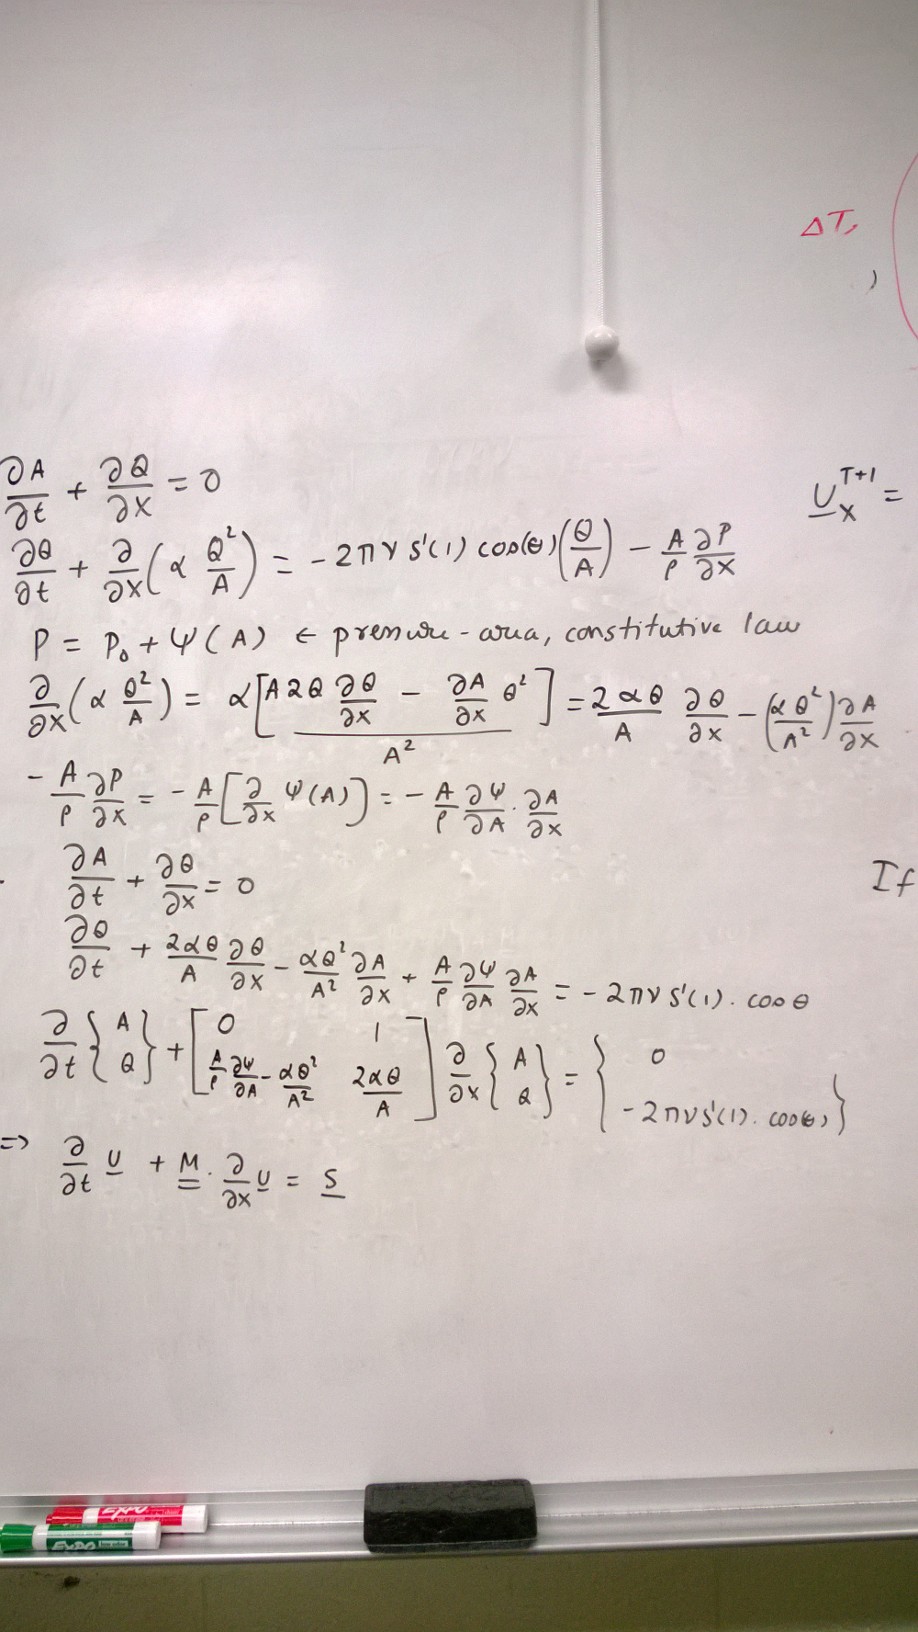 ΔT,
)
∂A/∂t + ∂Q/∂x = 0
U_x^{T+1} =
∂Q/∂t + ∂/∂x(α Q²/A) = -2πν s'(1) cos(θ)(Q/A) - A/ρ ∂P/∂x
P = P₀ + Ψ(A) ← pressure-area, constitutive law
∂/∂x(α Q²/A) = α[A2Q ∂Q/∂x - ∂A/∂x Q²]/A² = 2αQ/A ∂Q/∂x - (αQ²/A²)∂A/∂x
-A/ρ ∂P/∂x = -A/ρ[∂/∂x Ψ(A)] = -A/ρ ∂Ψ/∂A · ∂A/∂x
∂A/∂t + ∂Q/∂x = 0
If
∂Q/∂t + 2αQ/A ∂Q/∂x - αQ²/A² ∂A/∂x + A/ρ ∂Ψ/∂A ∂A/∂x = -2πν s'(1) · cos θ
∂/∂t {A Q} + [0 1; A/ρ ∂Ψ/∂A - αQ²/A² 2αQ/A] ∂/∂x {A Q} = {0; -2πν s'(1) · cos θ}
=> ∂/∂t U + M · ∂/∂x U = S
EXPO
EXPO